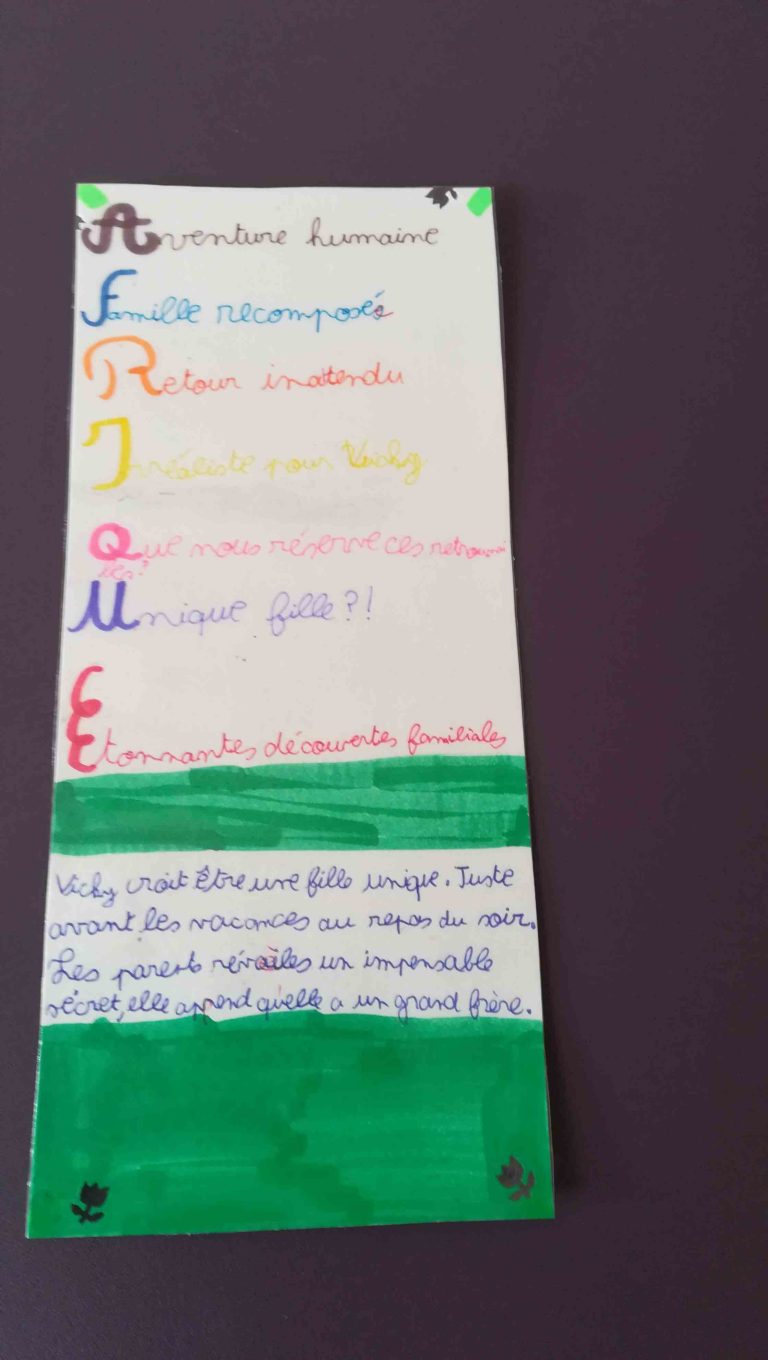 Aventure humaine
Famille recomposés
Retour inattendu
Irréaliste pour Vicky
Que nous réserve ces retrouvai
lles?
Unique fille?!
Etonnantes découvertes familiales
Vicky croit Être une fille unique. Juste
avant les vacances au repas du soir.
Les parents révailes un impensable
sécret, elle apprend qu'elle a un grand frère.